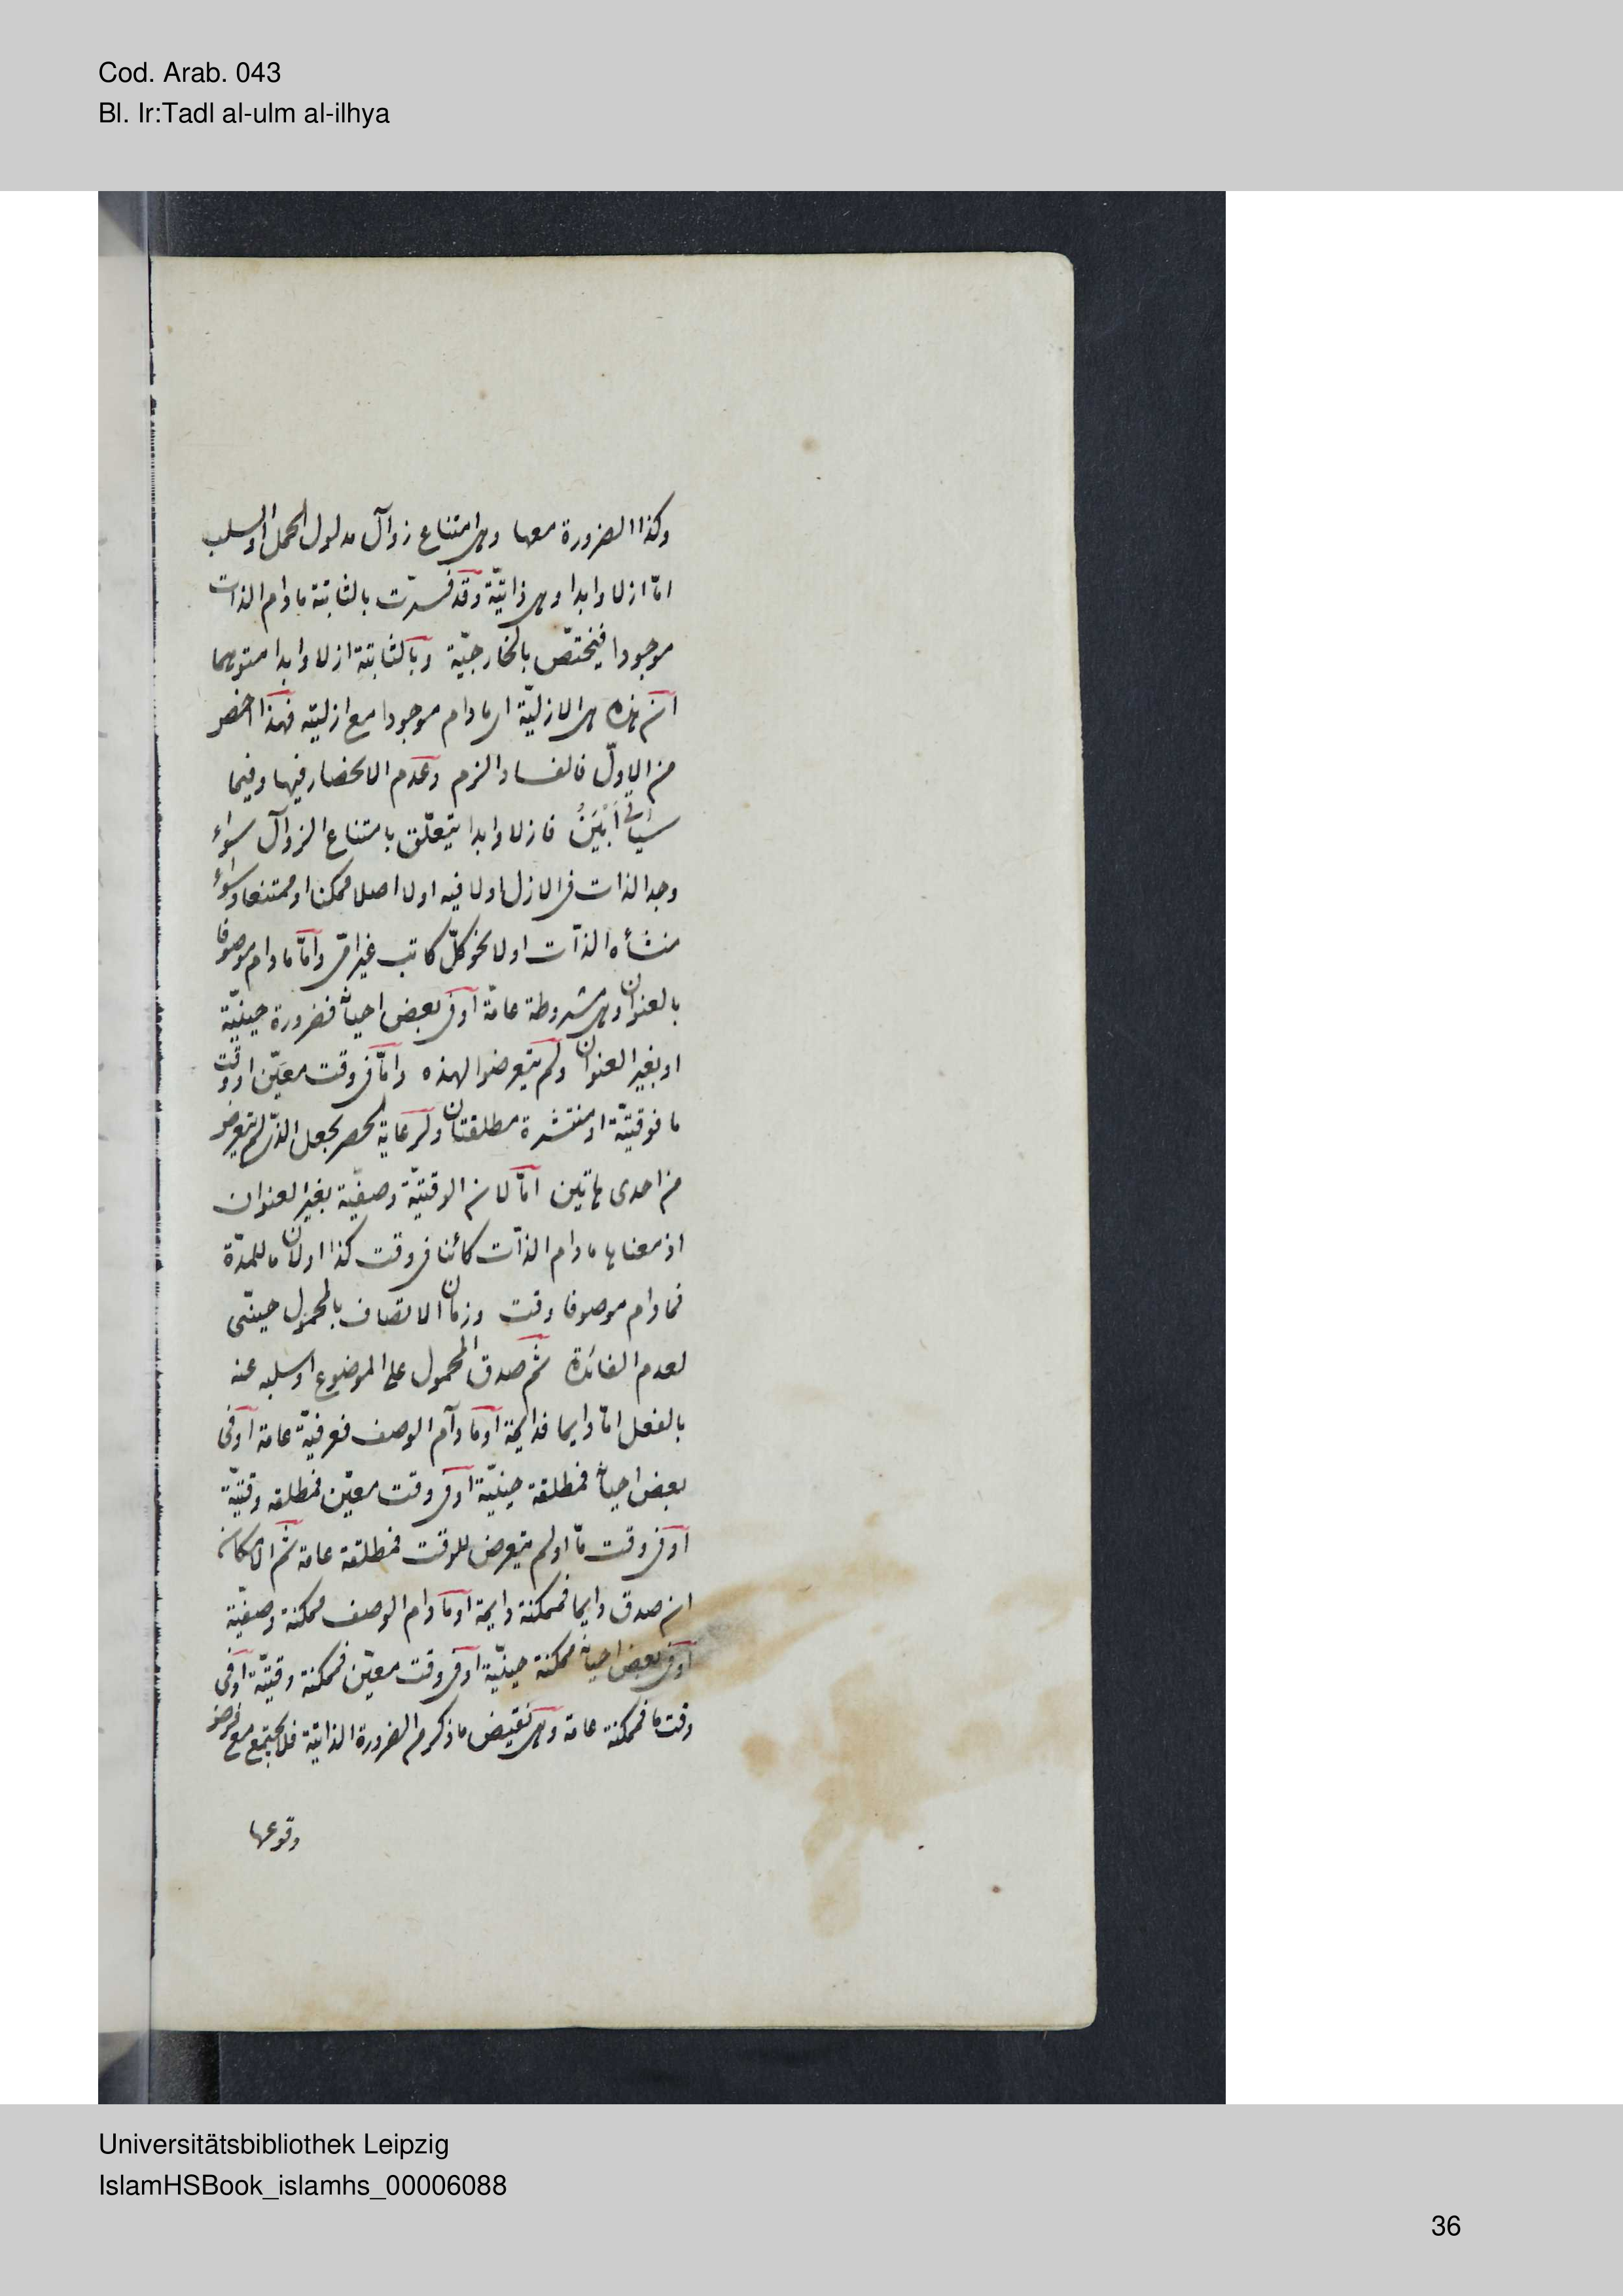 Cod. Arab. 043
Bl. Ir:Tadl al-ulm al-ilhya
وكذا الضرورة معها وهى امتناع زوال مدلول الحمل او السلب
امّا ازلا وابدا وهى ذاتيّة وقد فسرّت بالثابتة ما دام الذات
موجودا فيختصّ بالخارجيّة وبالثابتة ازلا وابدا متوهما
ان هذه هى الازليّة اى ما دام موجودا مع ازليته فهذا اخص
من الاولّ فالفساد الزم وعدم الانحصار فيها وفيما
سيأتى أَبْيَنُ فازلا وابدا يتعلّق بامتناع الزوال سواء
وجد الذات فى الازل اولا فيه اولا اصلا ممكنا او ممتنعا وسواء
منشأه الذات اولا نحو كلّ كاتب غير امّى وامّا ما دام موصوفا
بالعنوان وهى مشروطة عامّة او فى بعض احيانه فضرورة حينيّة
او بغير العنوان ولم يتعرضوا لهذه وامّا فى وقت معيّن او وقت
ما فوقتيّة او منتشرة مطلقتان ولرعاية الحصر يجعل الذى لم يتعرض
من احدى هاتين امّا لان الوقتيّة وصفيّة بغير العنوان
اذ معناها ما دام الذات كائنا فى وقت كذا اولان ما للمدّة
فما دام موصوفا وقت وزمان الاتصاف بالمحمول حينىّ
لعدم الفائدة ثم صدق المحمول على الموضوع او سلبه عنه
بالفعل امّا دايما فدايمة او ما دام الوصف فعرفيّة عامة او فى
بعض احيانه فمطلقة حينيّة او فى وقت معيّن فمطلقه وقتيّة
او فى وقت مّا اولم يتعرض للوقت فمطلقة عامة ثم الامكان
ان صدق دايما فممكنة دايمة او ما دام الوصف ممكنة وصفيّة
او فى بعض احيانه ممكنة حينيّة او فى وقت معيّن فممكنة وقتيّة او فى
وقت ما فممكنة عامة وهى نقيض ما ذكر من الضرورة الذاتية فلا يجتمع مع فرض
وقوعها
Universitätsbibliothek Leipzig
IslamHSBook_islamhs_00006088
36